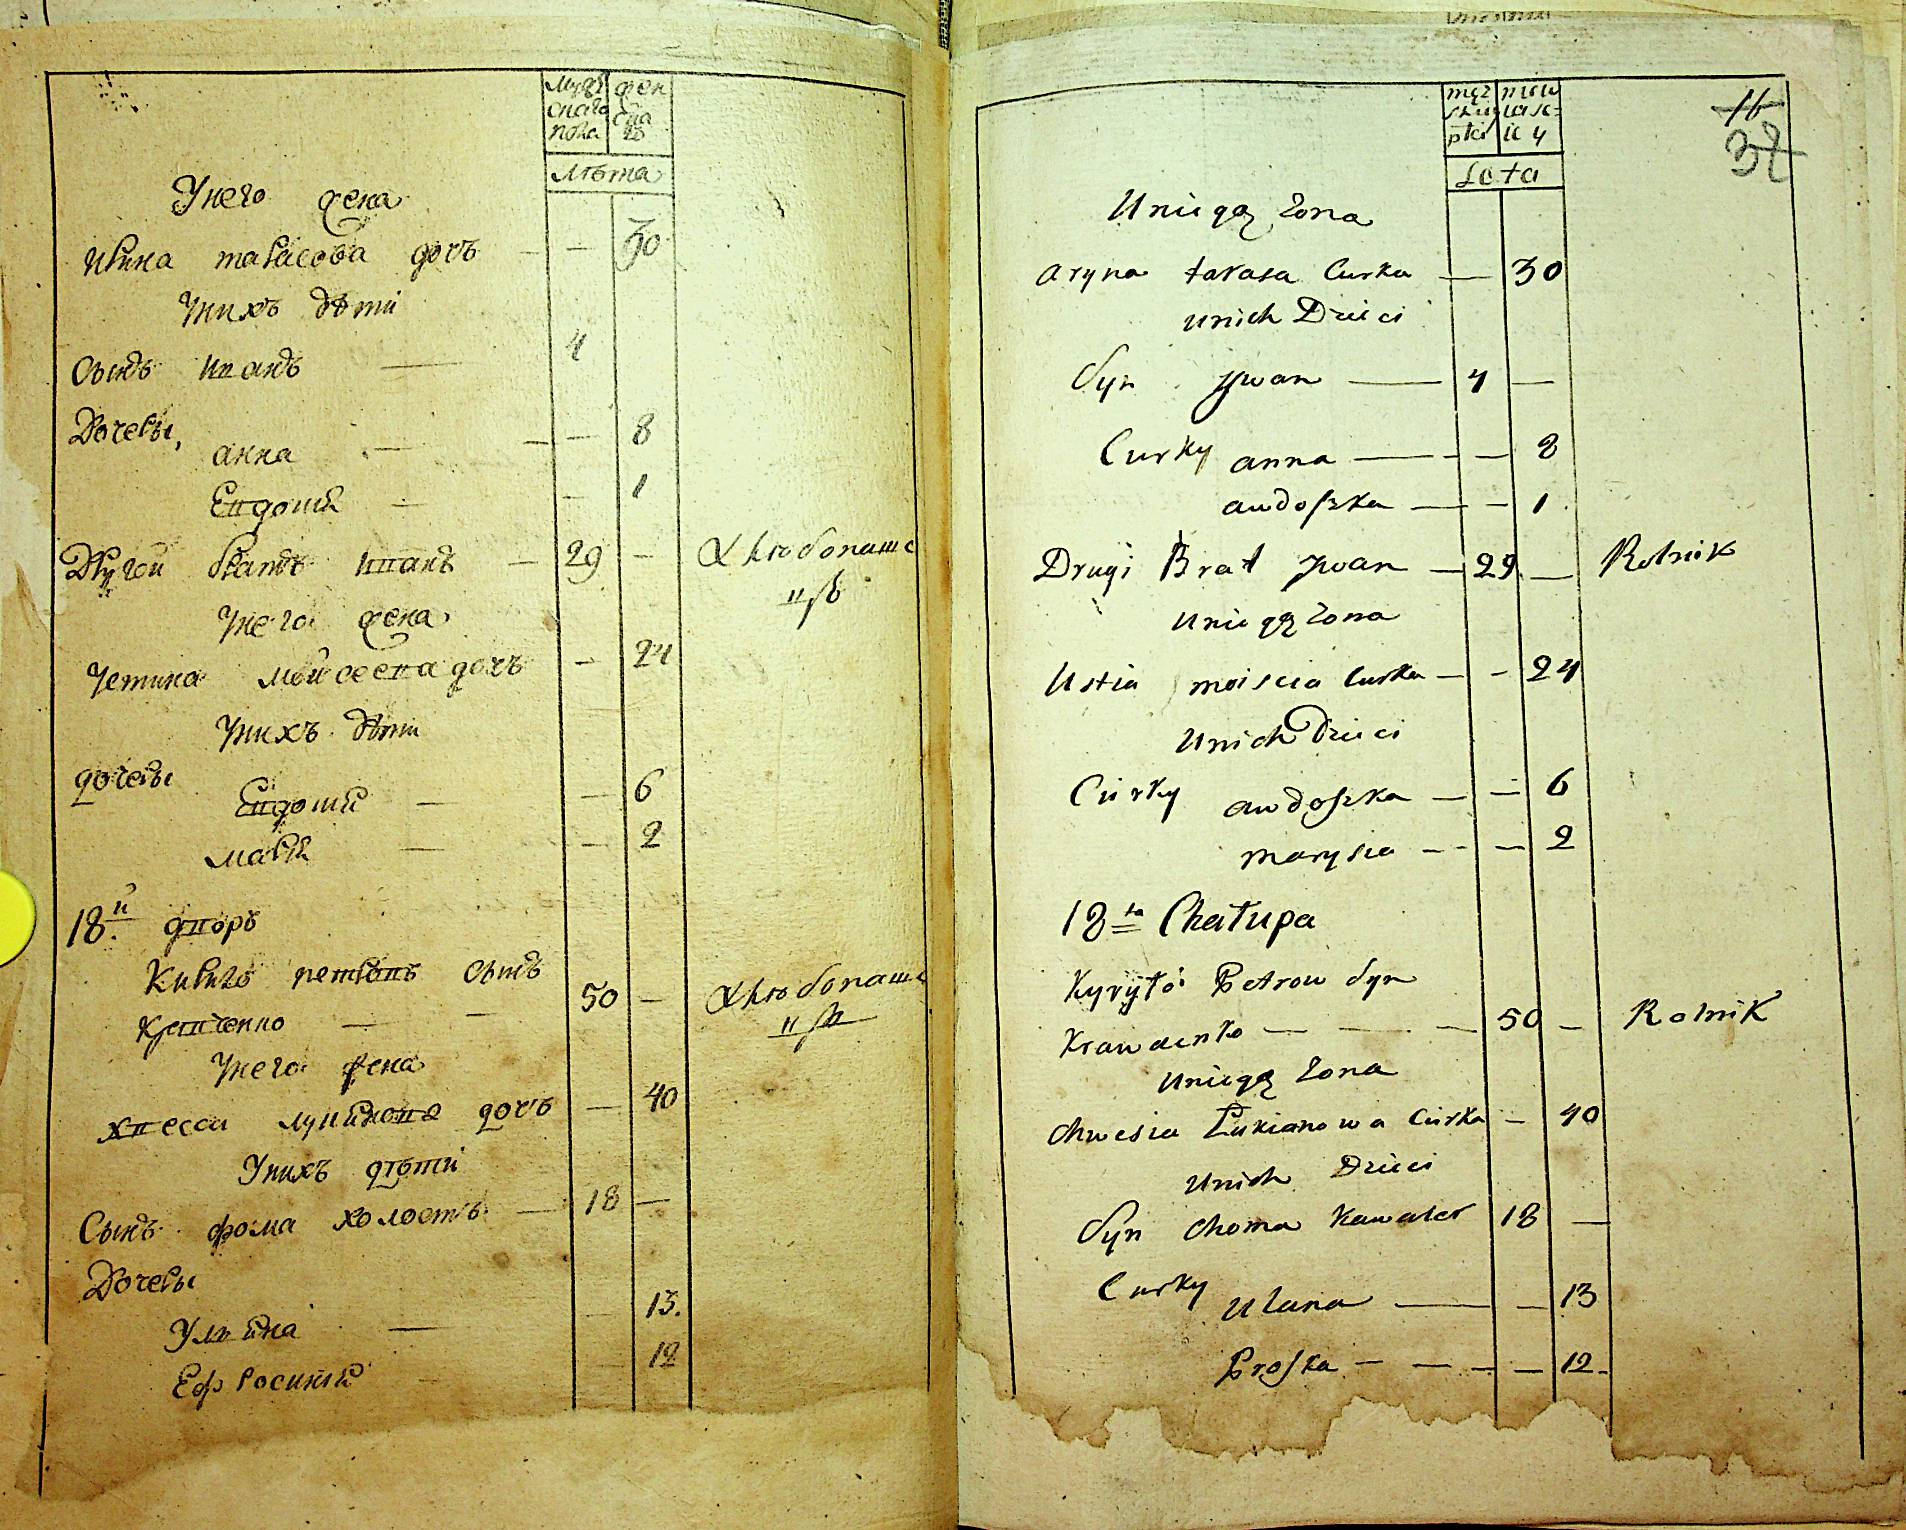 Мужескаго пола женскаго
Лѣта
У него жена
Ирина тарасова дочъ — 30
У нихъ дѣти
Сынъ иванъ — 4
Дочеры,
анна — 8
Евдокия — 1
Другой братъ иванъ — 29 — Хлѣбопаше
цъ
У него жена
Устина мойсеева дочъ — 24
У нихъ дѣти
дочеры
Евдокия — 6
мария — 2
18.й дворъ
Кирило петровъ сынъ
Кравченко — — 50 — Хлѣбопаше
цъ
У него жена
хвеси лукиянова дочъ — 40
У нихъ дѣти
Сынъ фома холостъ — 18 —
Дочеры
Улияна — 13.
Ефросиния 12
męzkiej płci
Lata
16
32
U niego Żona
aryna tarasa Curka — 30
u nich Dzieci
Syn Jwan — 4 —
Curky anna — - — 8
awdoszka — - 1.
Drugi Brat Jwan — 29 — Rolnik
U niego Żona
Ustia moiseia Curka — - 24
U nich Dzieci
Curky awdoszka — — 6
marysia - - — 2
18ta Chałupa
Kyryło Petrow Syn
Krawczenko — — — 50 — Rolnik
U niego Żona
Chwesia Łukianowa Curka — 40
U nich Dzieci
Syn Choma Kawaler 18 —
Curky Ulana — — 13
Proska — — — — 12.